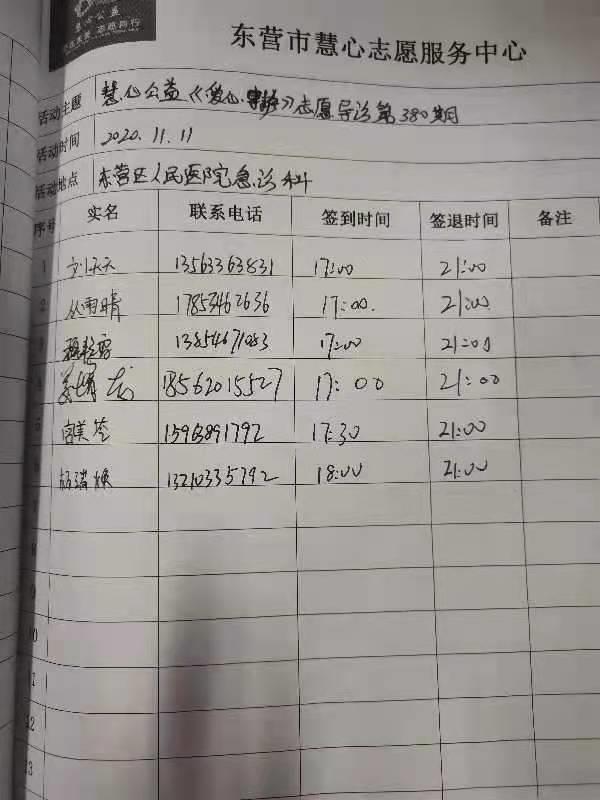 慧心公益
东营市慧心志愿服务中心
活动主题 慧心公益《爱心·》志愿导诊第380期
活动时间 2020.11.11
活动地点 东营区人民医院急诊科
序号 实名 联系电话 签到时间 签退时间 备注
1 刘天天 13563363831 17:00 21:00
2 丛雨晴 17853462636 17:00. 21:00.
3 13854671083 17:00 21:00
4 18562015527 17:00 21:00
5 宫美苓 15963891792 17:30 21:00
6 杨瑞焕 13210335792 18:00 21:00
7
8
9
10
11
12
13